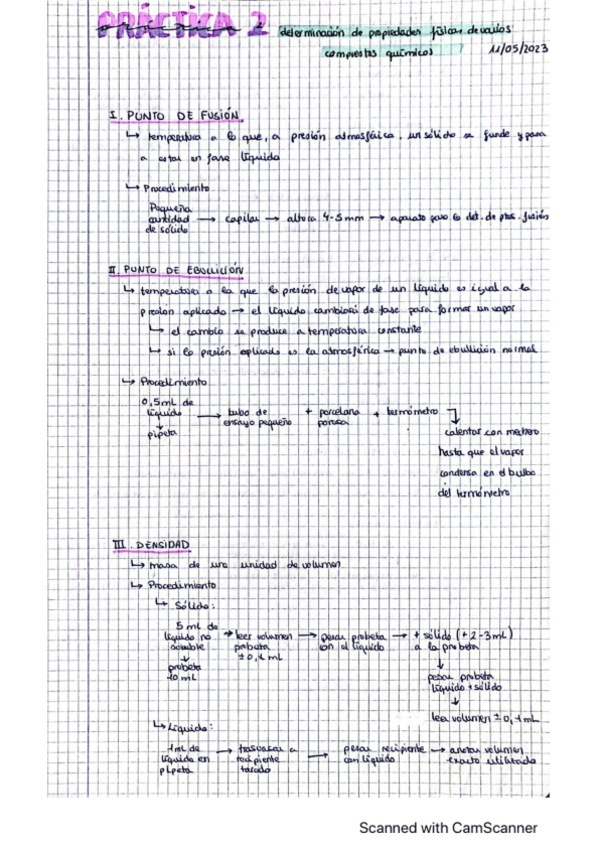 PRÁCTICA 2 determinación de propiedades físicas de varios
compuestos químicos 11/05/2023
I. PUNTO DE FUSIÓN
↳ temperatura a la que, a presión atmosférica, un sólido se funde y pasa
a estar en fase líquida
↳ Procedimiento
Pequeña
cantidad → capilar → altura 4-5mm → aparato para la det. de ptos. fusión
de sólido
II. PUNTO DE EBULLICIÓN
↳ temperatura a la que la presión de vapor de un líquido es igual a la
presión aplicada → el líquido cambiará de fase para formar un vapor
↳ el cambio se produce a temperatura constante
↳ si la presión aplicada es la atmosférica → punto de ebullición normal
↳ Procedimiento
0,5mL de
líquido → tubo de + porcelana + termómetro
↓ ensayo pequeño porosa
pipeta
calentar con mechero
hasta que el vapor
condensa en el bulbo
del termómetro
III. DENSIDAD
↳ masa de una unidad de volumen
↳ Procedimiento
↳ Sólido:
5 mL de
líquido no → leer volumen → pesar probeta → + sólido (+2-3mL)
soluble probeta con el líquido a la probeta
↓ ±0,1 mL ↓
probeta pesar probeta
10 mL líquido + sólido
↓
leer volumen ±0,1mL
↳ Líquido:
1mL de → trasvasar a → pesar recipiente → anotar volumen
líquido en recipiente con líquido exacto utilizado
pipeta tarado
Scanned with CamScanner